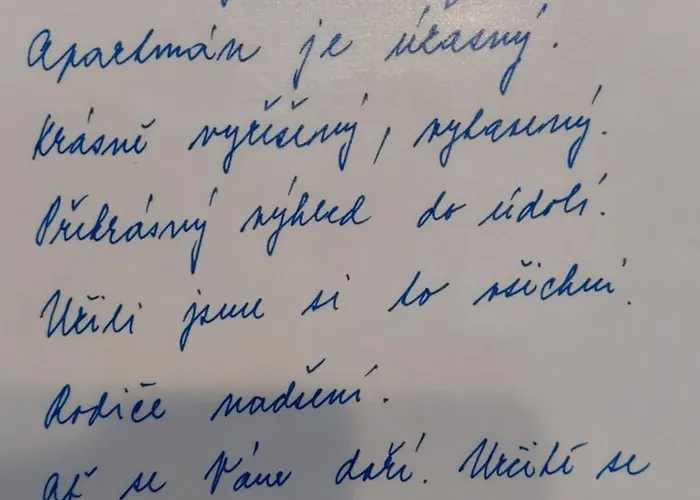 Apartmán je úžasný.
Krásně vyřešený, vybavený.
Překrásný výhled do údolí.
Užili jsme si to všichni.
Rodiče nadšení.
Ať se Vám daří. Určitě se